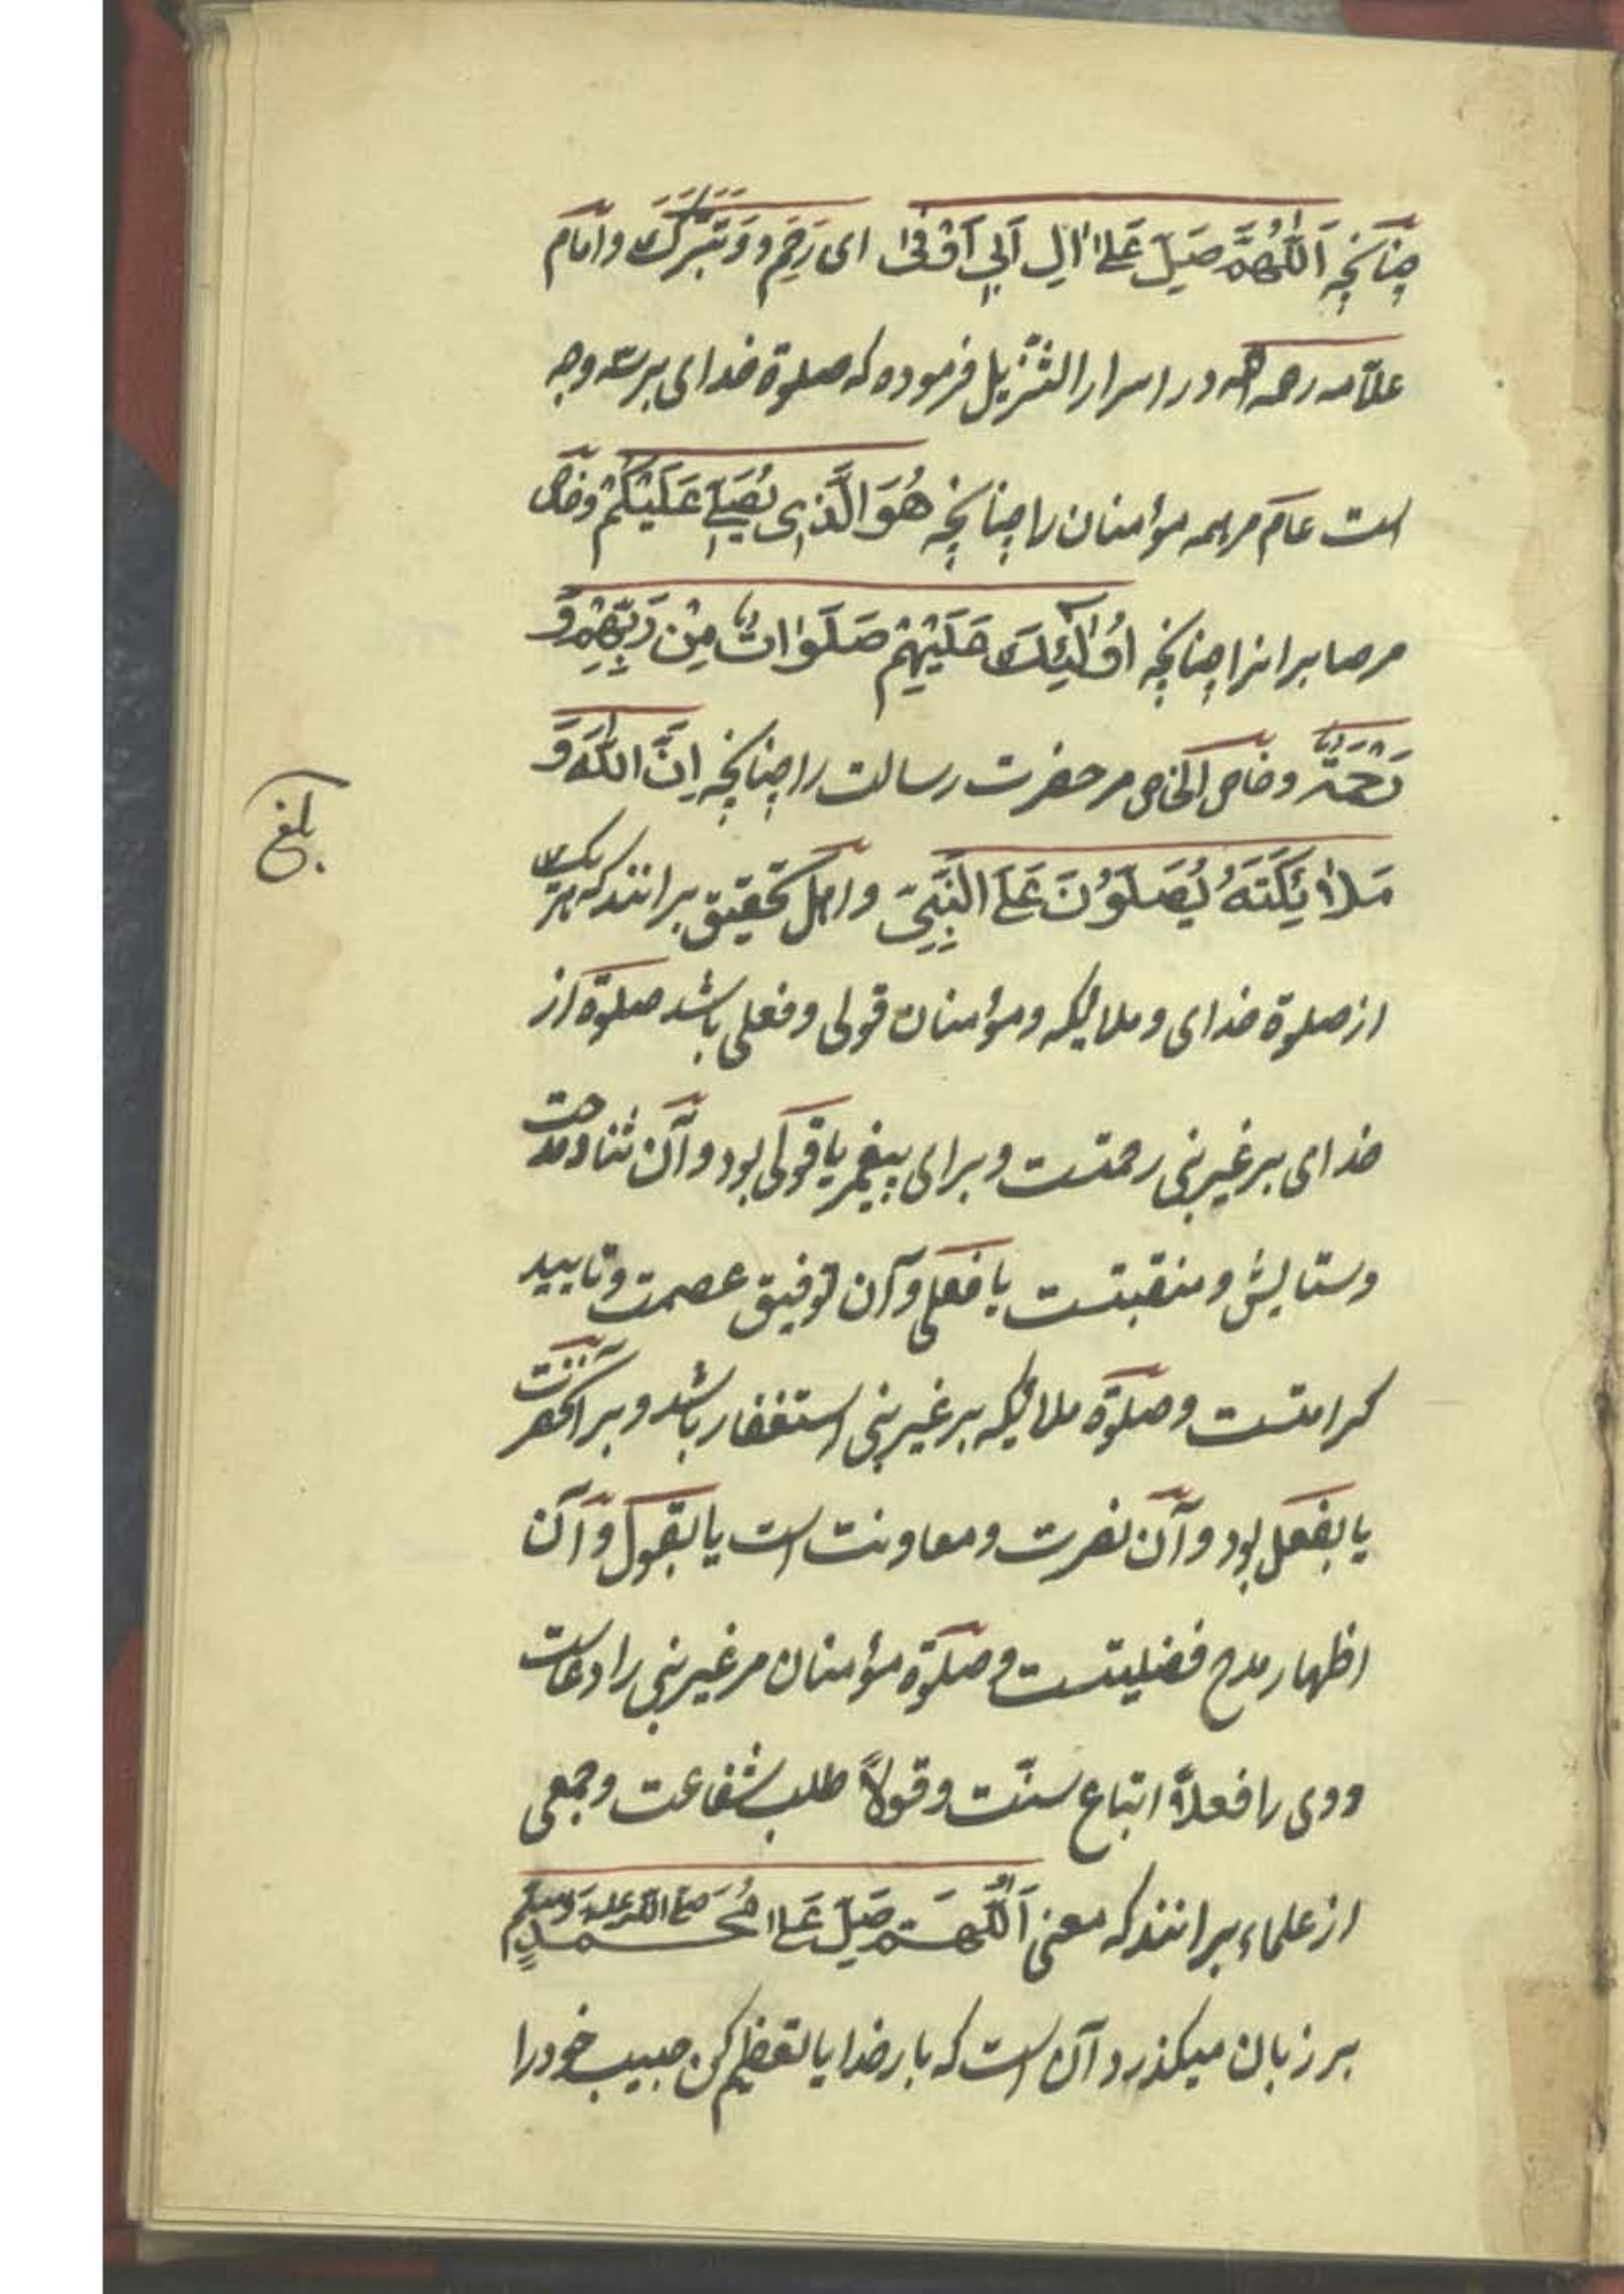 چنانچه اَللّٰهُمَّ صَلِّ عَلىٰ اٰلِ اَبِي اَوْفىٰ اى رَحِّم و وَتَبَرَّكَ و امام
علّامه رحمه الله در اسرار التنزيل فرموده كه صلوة خداى بر سه وجه
است عام مر همه مؤمنان را چنانچه هُوَ الَّذِى يُصَلِّى عَلَيْكُمْ وخاص
مر صابرانرا چنانچه اُولٰئِكَ عَلَيْهِمْ صَلَوٰاتٌ مِنْ رَبِّهِمْ وَ
رَحْمَةٌ وخاص الخاص مر حضرت رسالت را چنانچه اِنَّ اللّٰهَ وَ
مَلاٰئِكَتَهُ يُصَلُّوْنَ عَلَى النَّبِىِّ و اهل تحقيق برانند كه هر يك
بلغ
از صلوة خداى و ملائيكه و مؤمنان قولى و فعلى باشد صلوة از
خداى بر غير نبى رحمتست و براى پيغمبر يا قولى بود و آن ثنا و مدحت
وستايش و منقبتست يا فعلى و آن توفيق عصمت و تاييد
كرامتست و صلوة ملائيكه بر غير نبى استغفار باشد و بر آنحضرت
يا بفعل بود و آن نصرت و معاونت است يا بقول و آن
اظهار مدح فضليتست و صلوة مؤمنان مر غير نبى را دعاست
و وى را فعلاً اتباع سنّت و قولاً طلب شفاعت و جمعى
از علماء برانند كه معنى اَللّٰهُمَّ صَلِّ عَلىٰ مُحَمَّدٍ صلى الله عليه وسلم
بر زبان ميكذرد آن است كه بار خدايا تعظيم كن حبيب خود را